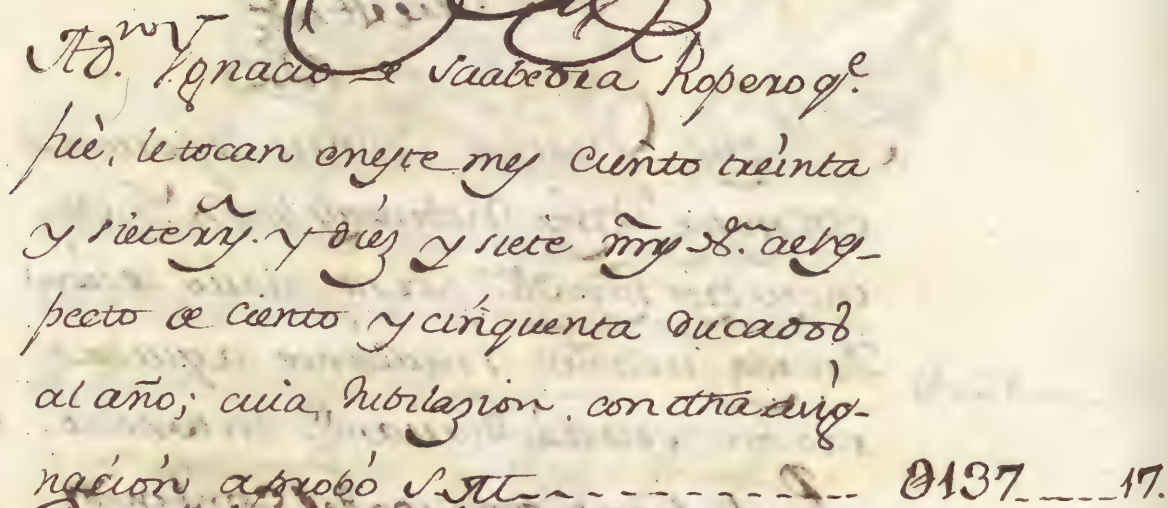 A D.ⁿ Ygnacio de Saabedra Ropero q.ᵉ
fuè, le tocan eneste mes ciento treinta
y siete rr.ˢ y diez y siete mrs v.ⁿ al res-
pecto de ciento y cinquenta ducados
al año; cuia Jubilazion con dha asig-
nación aprobó S. M. ------------ 0137 ----- 17.